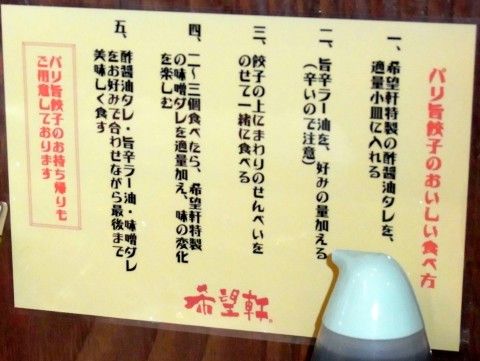 パリ旨餃子のおいしい食べ方
一、希望軒特製の酢醤油タレを、
適量小皿に入れる
二、旨辛ラー油を、好みの量加える
（辛いので注意）
三、餃子の上にまわりのせんべいを
のせて一緒に食べる
四、二～三個食べたら、希望軒特製
の味噌ダレを適量加え、味の変化
を楽しむ
五、酢醤油タレ・旨辛ラー油・味噌ダレ
をお好みで合わせながら最後まで
美味しく食す
パリ旨餃子のお持ち帰りも
ご用意しております
希望軒